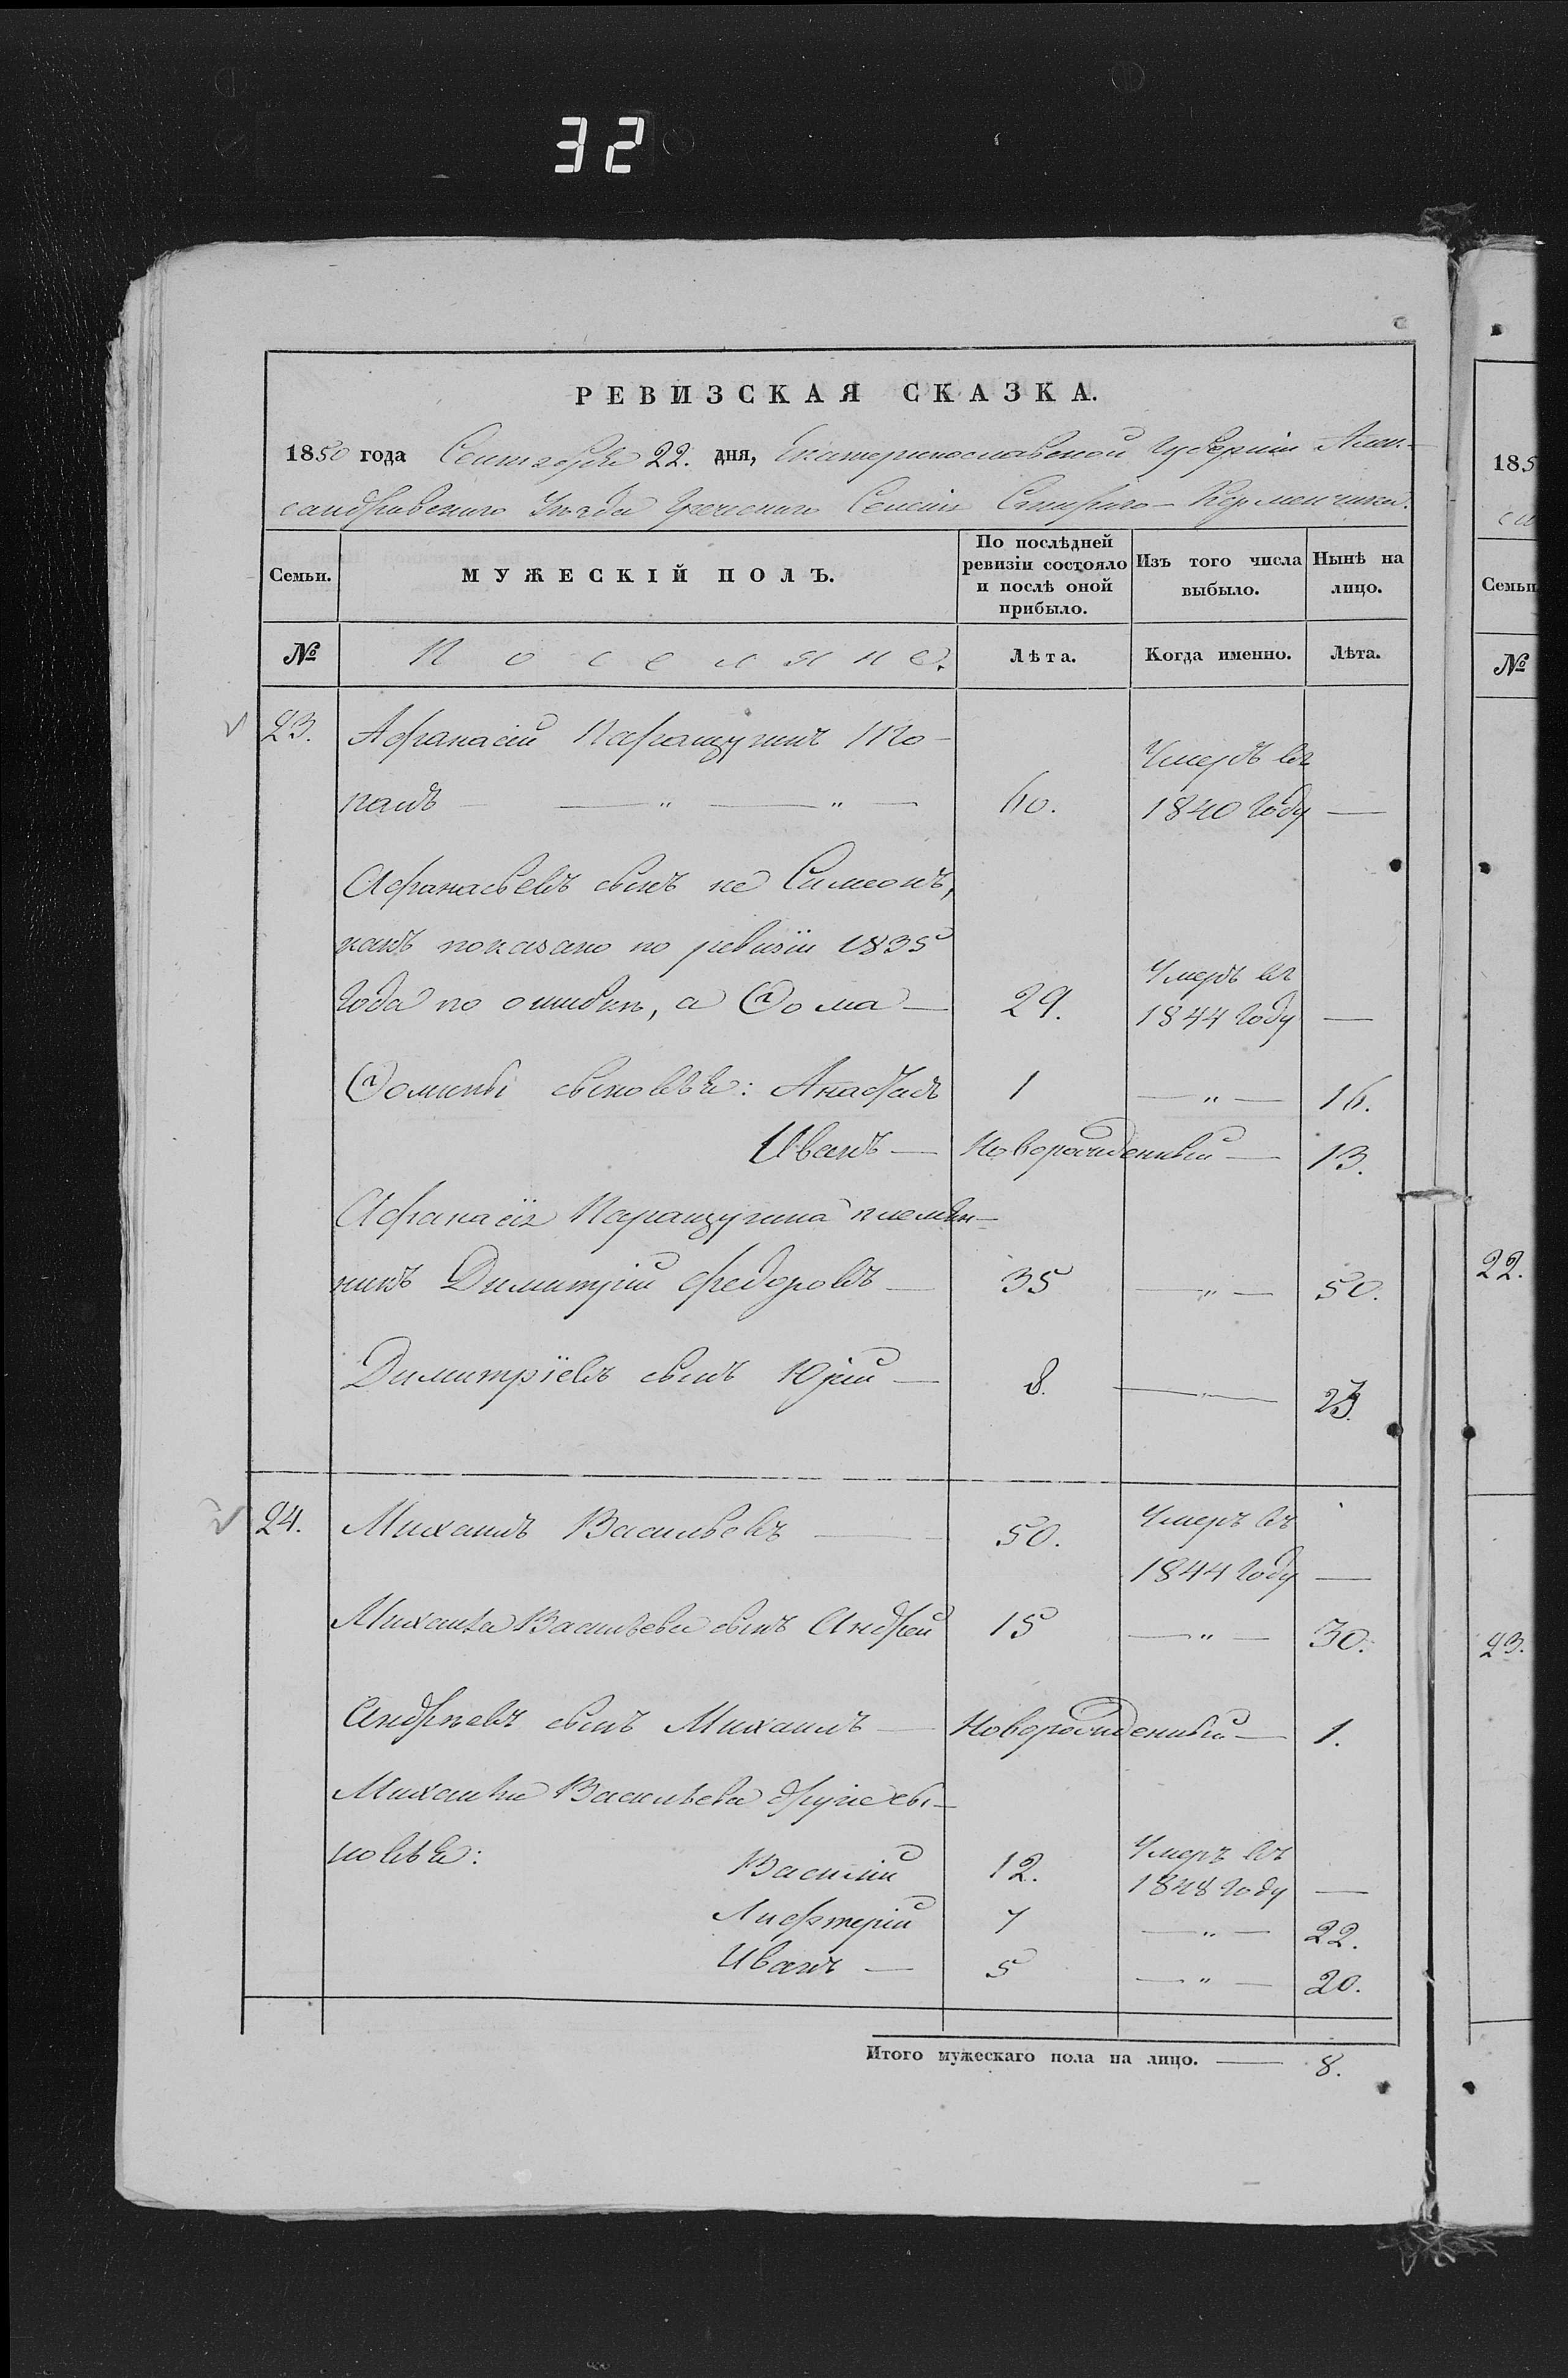 32
РЕВИЗСКАЯ СКАЗКА.
1850 года Сентября 22. дня, Екатеринославской Губерніи Алек-
сандровскаго Уѣзда Греческаго Селенія Стараго-Керменчика.
Семьи. МУЖЕСКІЙ ПОЛЪ. По послѣдней ревизіи состояло и послѣ оной прибыло. Изъ того числа выбыло. Нынѣ на лицо.
№ Поселяне. Лѣта. Когда именно. Лѣта.
23. Афанасій
Умеръ въ
60. 1840 году —
Афанасьевъ сынъ не Симеонъ,
какъ показано по ревизіи 1835
года по ошибкѣ, а Ѳома — 29. Умеръ въ 1844 году —
Ѳомины сыновья: 1 — " — 16.
Иванъ — Новорожденный — 13.
Афанасія племян-
никъ Димитрій Федоровъ — 35 — " — 50.
Димитріевъ сынъ Юрій — 8. — 23.
24. Михаилъ Васильевъ — 50. Умеръ въ
1844 году —
Михаила Васильева сынъ Андрей 15 — " — 30.
Андрѣевъ сынъ Михаилъ — Новорожденный — 1.
Михаила Васильева другіе сы-
новья: Василій 12. Умеръ въ 1848 году —
Лифтерій 7 — " — 22.
Иванъ — 5 — " — 20.
Итого мужескаго пола на лицо. — 8.
185
Семьи
№
22.
23.